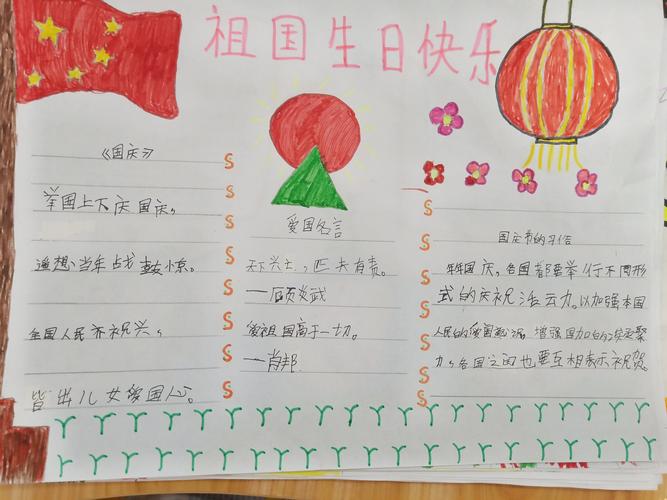 祖国生日快乐
《国庆》
举国上下庆国庆,
遥想当年战鼓惊。
全国人民齐祝兴,
皆出儿女爱国心。
爱国名言
天下兴亡,匹夫有责。
—顾炎武
爱祖国高于一切。
—肖邦
国庆节的习俗
年年国庆,各国都要举行不同形
式的庆祝活动。以加强本国
人民的爱国意识,增强国家的凝聚
力,各国之间也要互相表示祝贺。